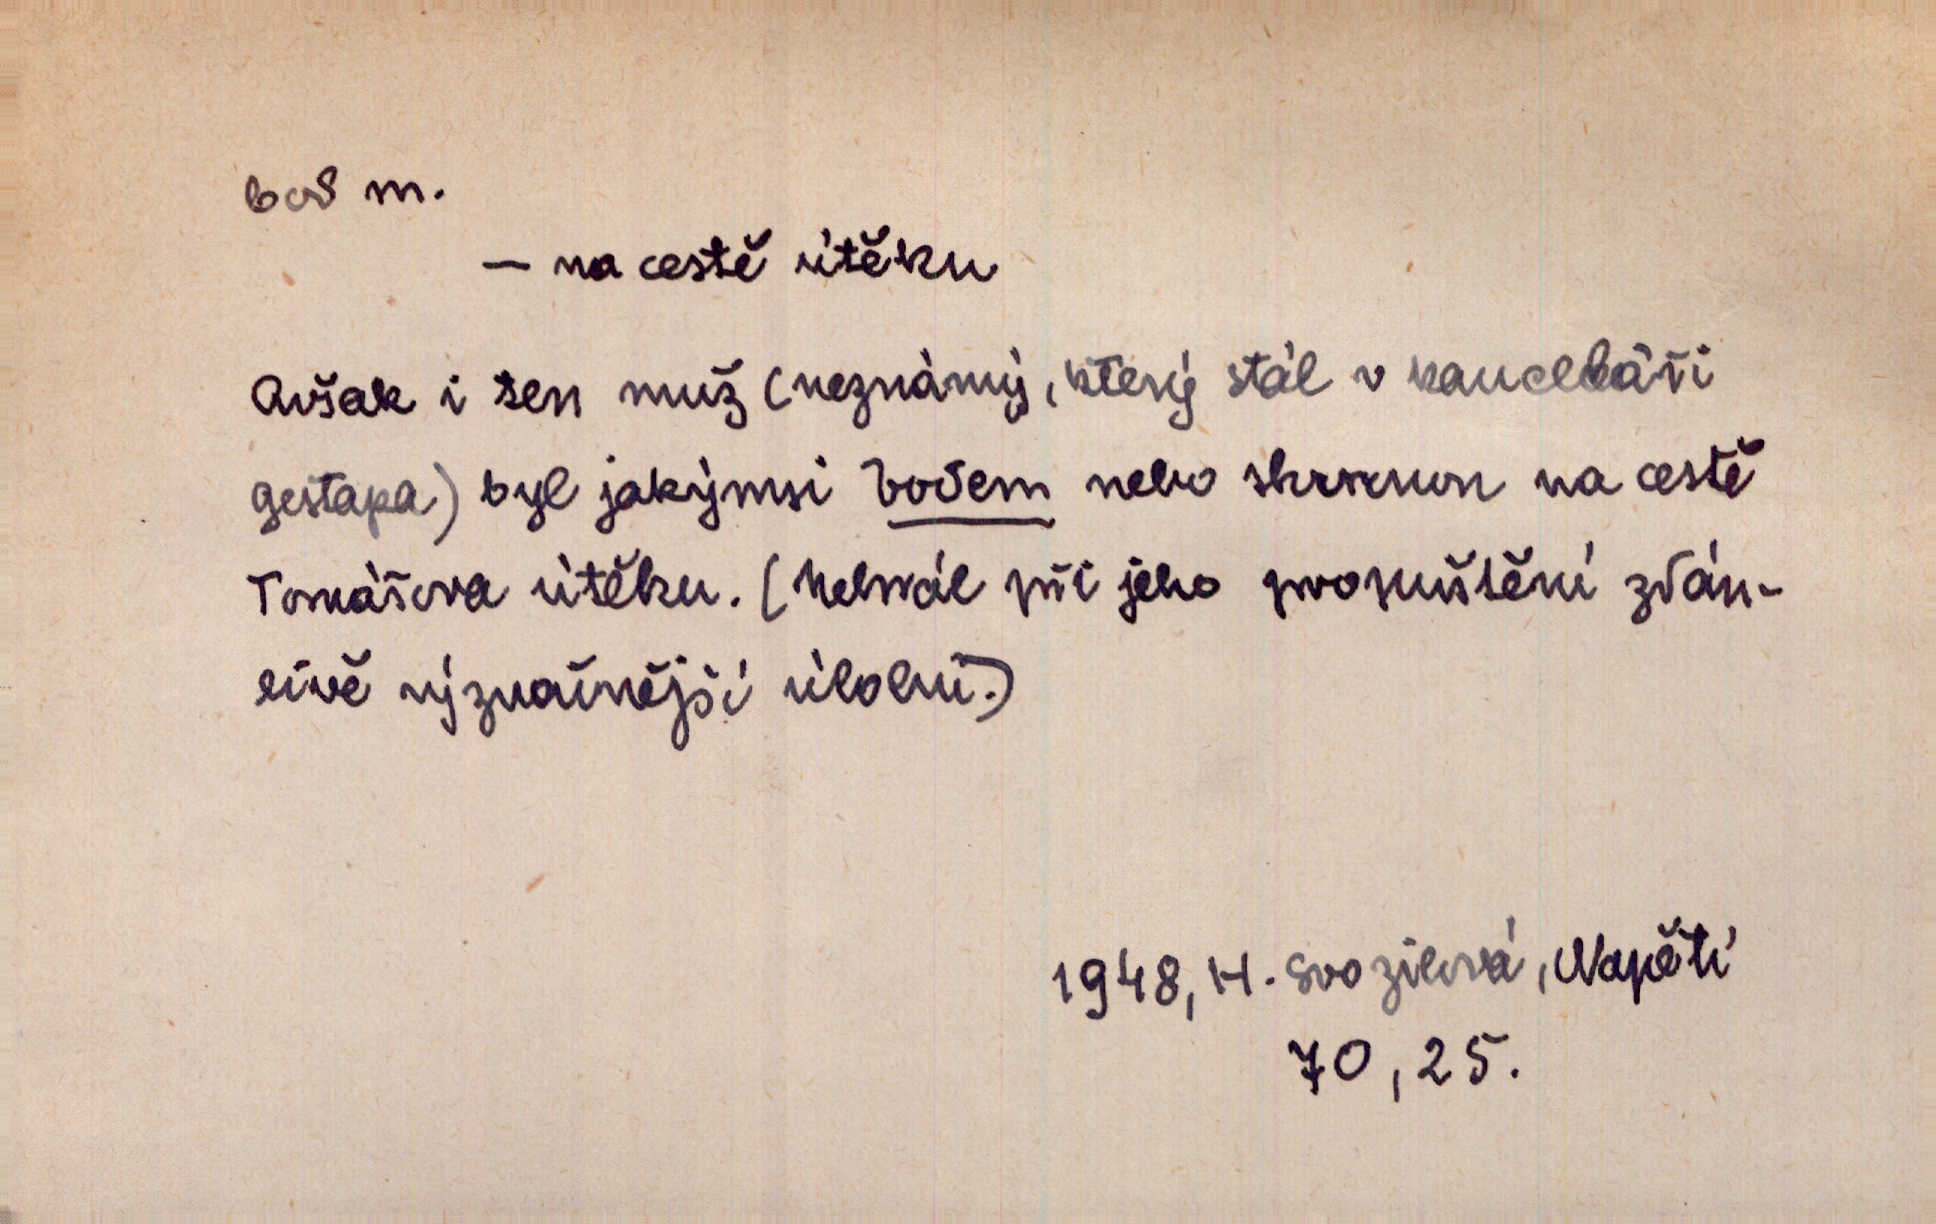 bod m.
— na cestě útěku
Avšak i ten muž (neznámý, který stál v kanceláři
gestapa) byl jakýmsi bodem nebo skvrnou na cestě
Tomášova útěku. (Nehrál při jeho propuštění zdán-
livě význačnější úlohu.)
1948, H. Svozilová, Napětí
70, 25.